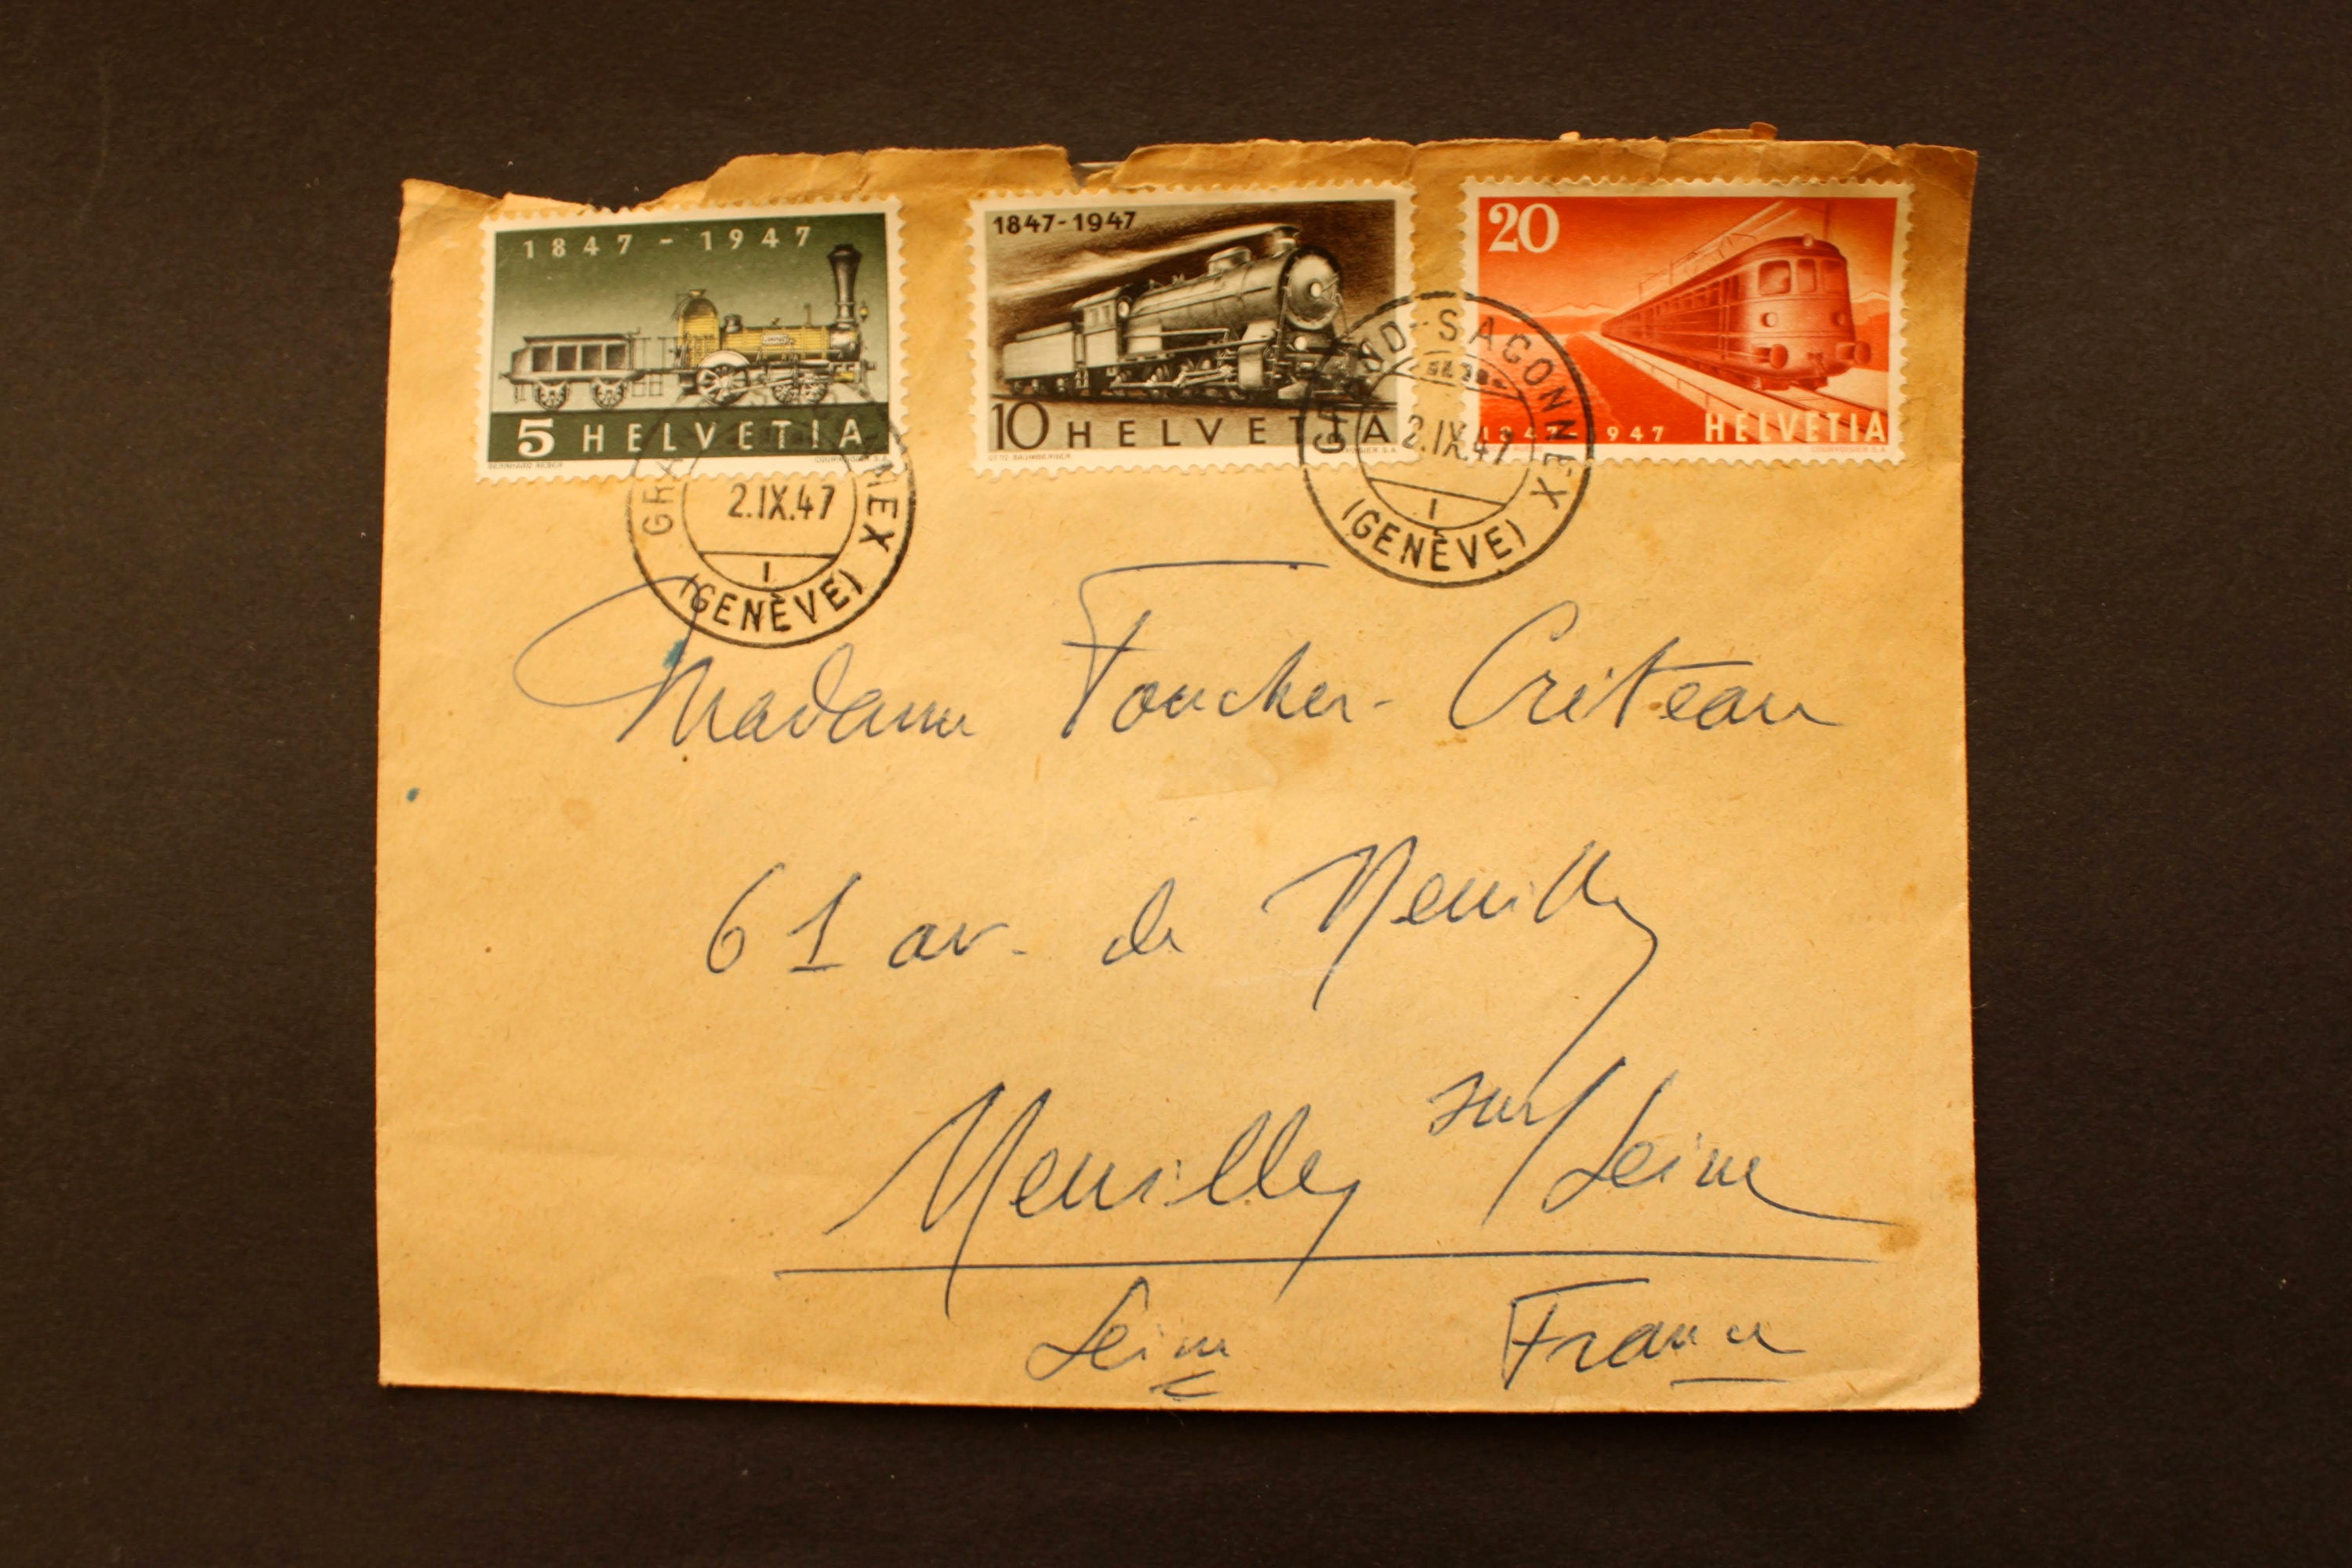 1847-1947
5 HELVETIA
BERNHARD REBER
COURVOISIER S.A.
1847-1947
10 HELVETIA
OTTO BAUMBERGER
20
1847-1947 HELVETIA
COURVOISIER S.A.
2.IX.47
1
(GENÈVE)
GRAND-SACONNEX
2.IX.47
1
(GENÈVE)
Madame Foucher-Criteau
61 av. de Neuilly
Neuilly sur/Seine
Seine France